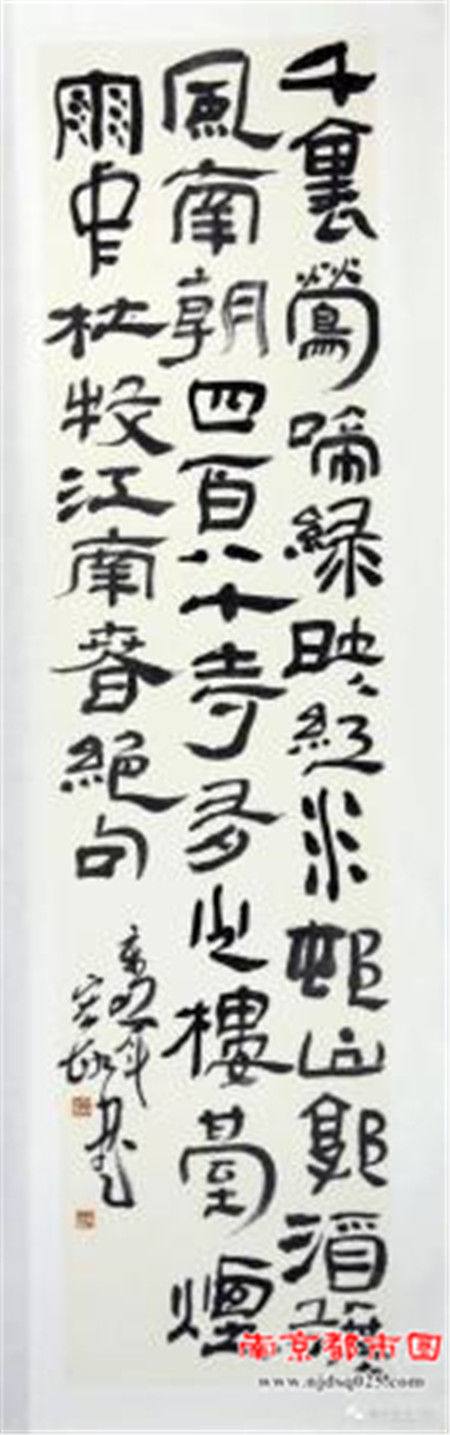 千裏鶯啼緑映紅水邨山郭酒旗
風南朝四百八十寺多少樓臺煙
雨中杜牧江南春絕句
年
书
南京都市圈
www.njdsq025.com